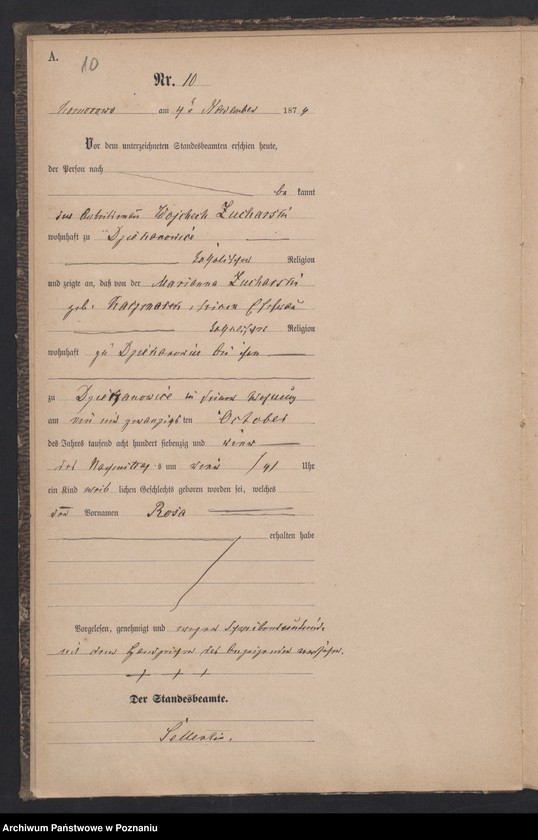 A.
10
Nr. 10
am 4t November 1874
Vor dem unterzeichneten Standesbeamten erschien heute,
der Person nach
be kannt
der Arbeitsmann Wojchech Zucharski
wohnhaft zu Dziekanowice
katholischer Religion
und zeigte an, daß von der Marianna Zucharski
geb. seiner Ehefrau
katholischer Religion
wohnhaft zu Dziekanowice bei ihm
zu Dziekanowice in seiner Wohnung
am ein und zwanzigsten October
des Jahrs tausend acht hundert siebenzig und vier
des Nachmittag s um vier /4/ Uhr
ein Kind weib lichen Geschlechts geboren worden sei, welches
den Vornamen Rosa
erhalten habe
Vorgelesen, genehmigt und wegen Schreibensunkunde
mit dem Handzeichen des Anzeigenden versehen.
+ + +
Der Standesbeamte.
Archiwum Państwowe w Poznaniu